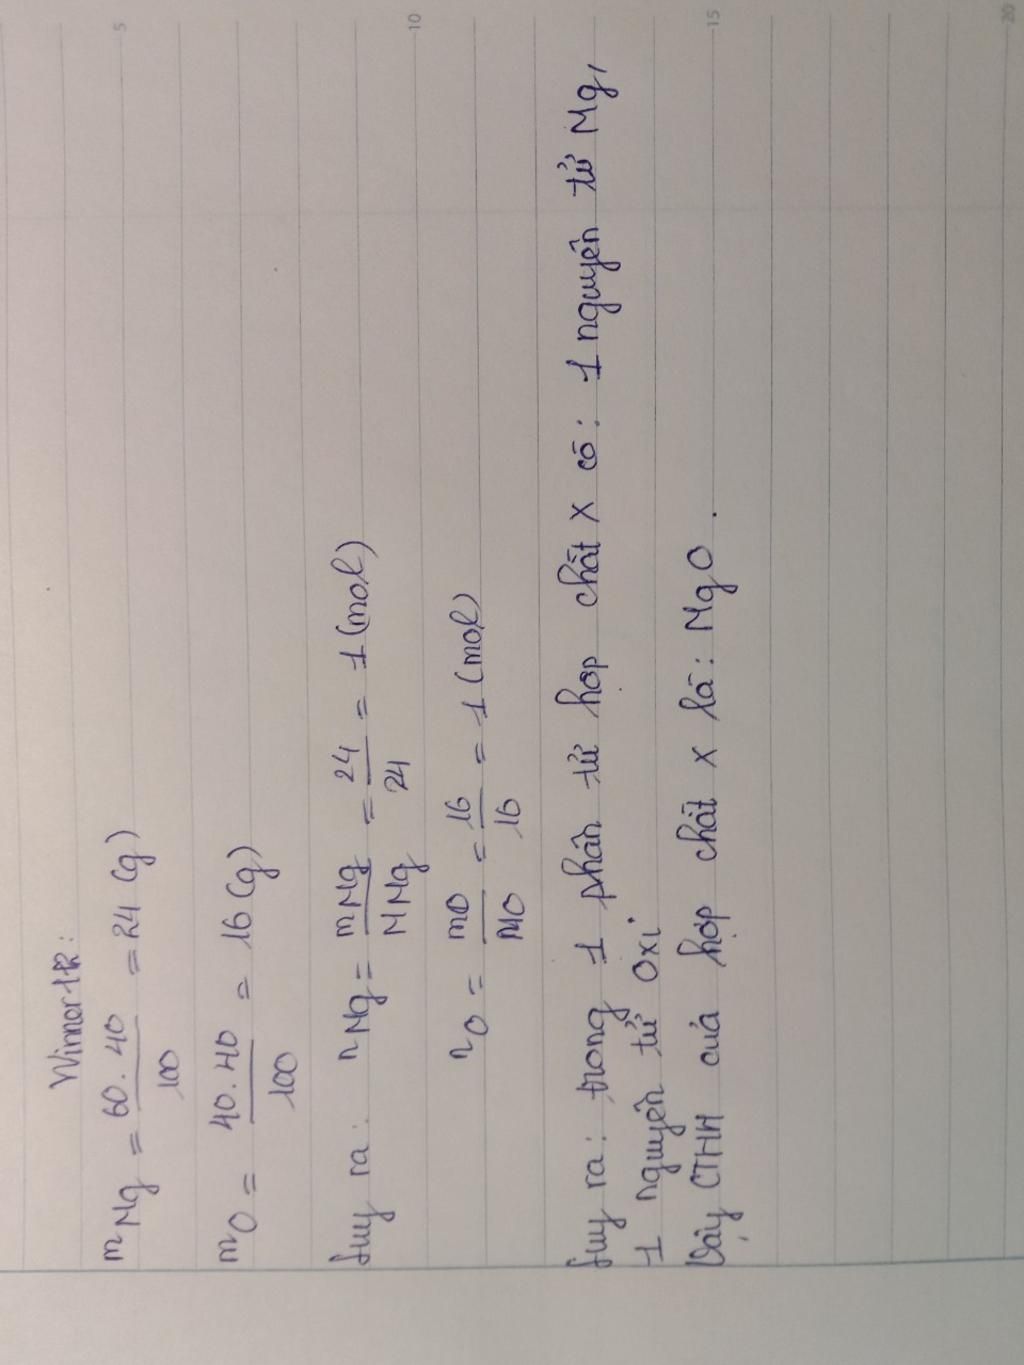 5 10 15 20
Winner-12:
mMg = 60.40/100 = 24 (g)
mO = 40.40/100 = 16 (g)
Suy ra: nMg = mMg/MMg = 24/24 = 1 (mol)
nO = mO/MO = 16/16 = 1 (mol)
Suy ra: trong 1 phân tử hợp chất X có: 1 nguyên tử Mg,
1 nguyên tử Oxi
Vậy CTHH của hợp chất X là: MgO.